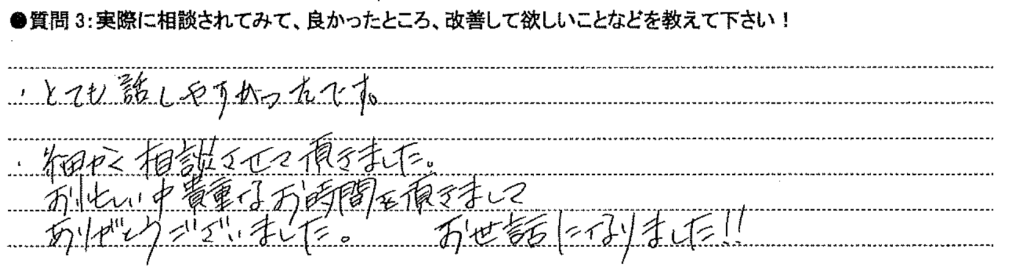 ●質問3:実際に相談されてみて、良かったところ、改善して欲しいことなどを教えて下さい!
・とても話しやすかったです。
・細かく相談させて頂きました。
お忙しい中貴重なお時間を頂きまして
ありがとうございました。 お世話になりました!!